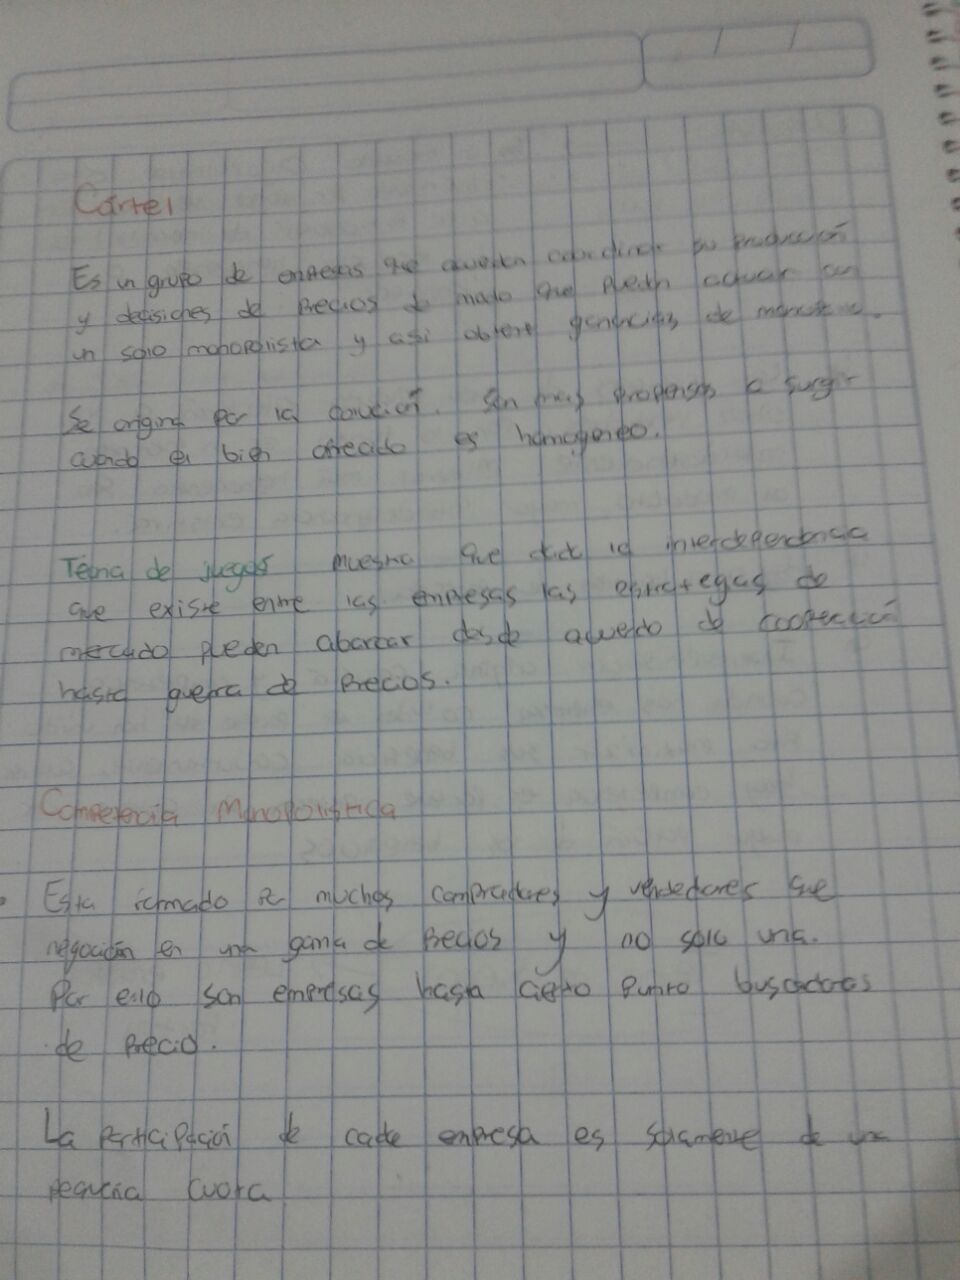 Cártel
Es un grupo de empresas que acuerdan coordinar su producción
y decisiones de precios de modo que pueden actuar con
un solo monopolista y asi obtener ganancias de
Se origina por la colución. Son mas propensos a surgir
cuando el bien ofrecido es homogeneo.
Teoria de juegos muestra que dada la interdependencia
que existe entre las empresas las estrategas de
mercado pueden abarcar desde acuerdo de cooperación
hasta guerra de precios.
Competencia Monopolistica
Esta formado por muchos compradores y vendedores que
negocian en una gama de precios y no solo una.
Por esto son empresas hasta cierto punto buscadoras
de precio.
La participación de cada empresa es solamente de una
pequeña cuota